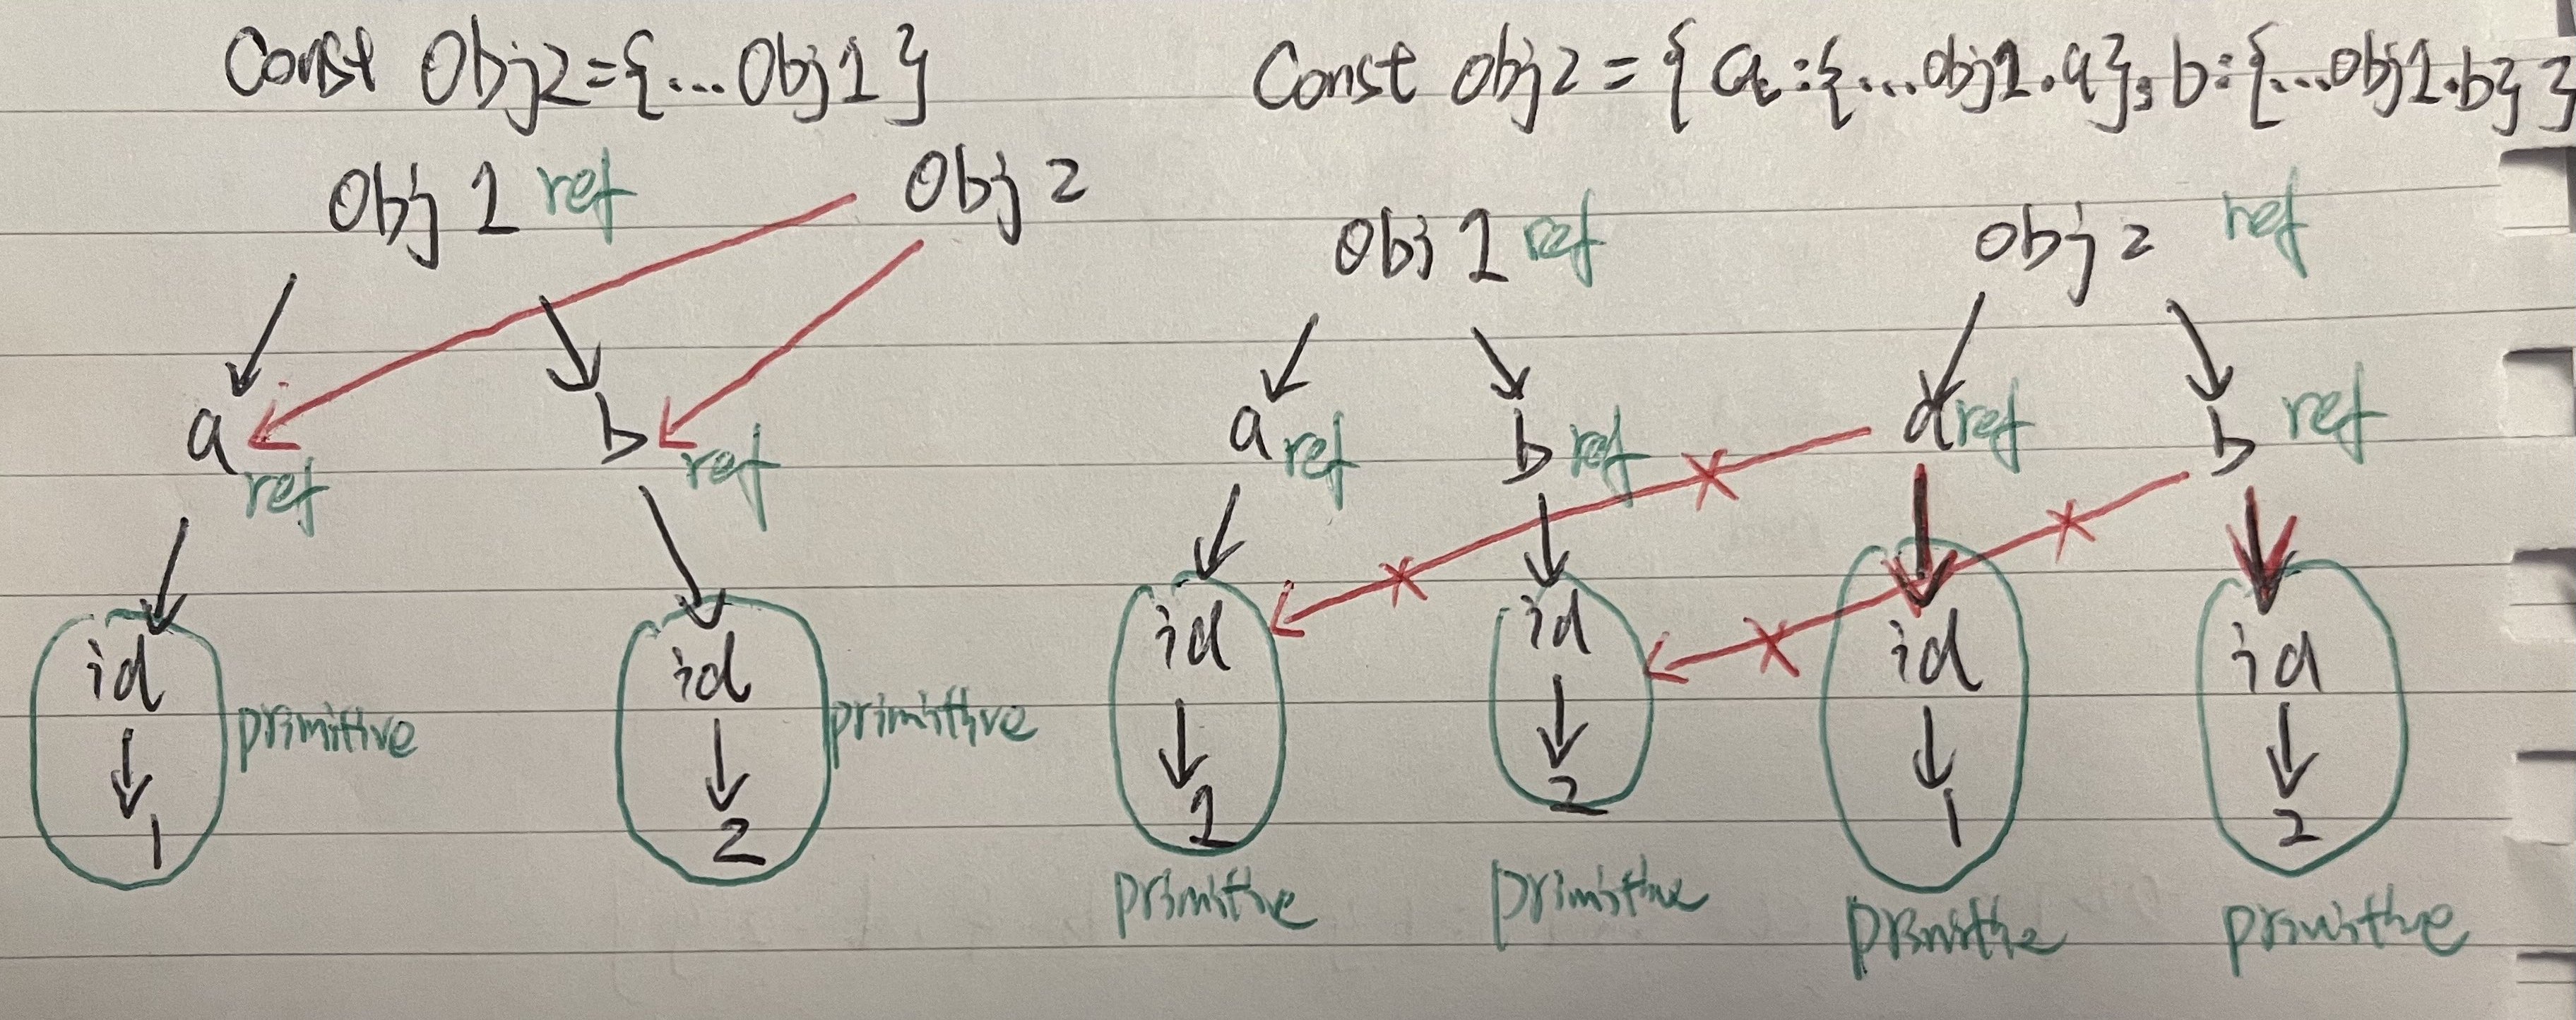 Const Obj2={...Obj1}
Obj 1 ref Obj 2
a ref b ref
id primitive id primitive
1 2
Const obj2 = { a:{...obj1.a}, b:{...obj1.b} }
Obj 1 ref obj 2 ref
a ref b ref a ref b ref
id id id id
1 2 1 2
primitive primitive primitive primitive